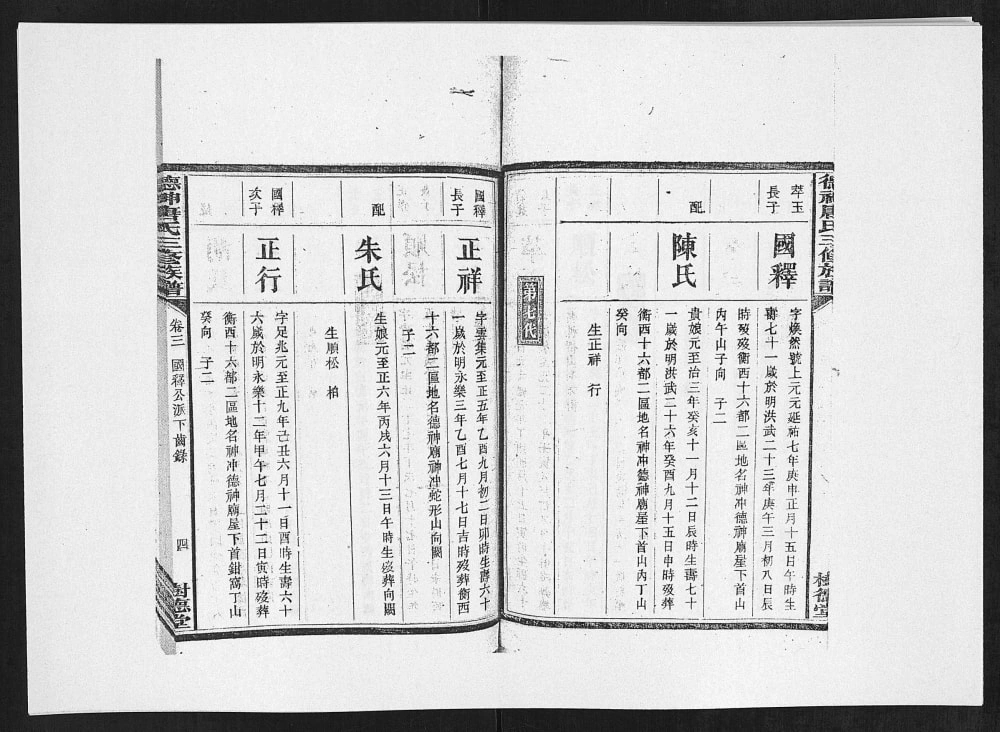 德神唐氏三修族譜
樹德堂
萃玉
長子
國釋
字煥然號上元元延祐七年庚申正月十五日午時生
壽七十一歲於明洪武二十三年庚午三月初八日辰
時歿葬衡西十六都二區地名神冲德神廟屋下首山
丙午山子向 子二
配
陳氏
貴娘元至治三年癸亥十一月十二日辰時生壽七十
一歲於明洪武二十六年癸酉九月十五日申時歿葬
衡西十六都二區地名神冲德神廟屋下首山內丁山
癸向
生正祥 行
第七代
國釋
長子
正祥
字雲集元至正五年乙酉九月初二日卯時生壽六十
一歲於明永樂三年乙酉七月十七日吉時歿葬衡西
十六都二區地名德神廟神冲蛇形山向闕
子二
配
朱氏
生娘元至正六年丙戌六月十三日午時生歿葬向闕
生順松 柏
國釋
次子
正行
字足兆元至正九年己丑六月十一日酉時生壽六十
六歲於明永樂十二年甲午七月二十二日寅時歿葬
衡西十六都二區地名神冲德神廟屋下首鉗窩丁山
癸向 子二
德神唐氏三修族譜
卷三 國釋公派下齒錄
四
樹德堂